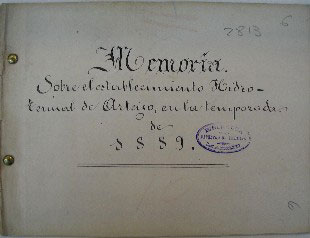 2813
6
Memoria.
Sobre el establecimiento Hidro-
termal de Arteijo, en la temporada
de
1889.